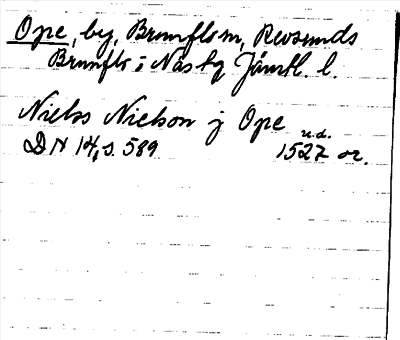 Ope, by, Brunflo sn, Revsunds
Brunflo i Näs tg Jämtl. l.
Nielss Nielson j Ope u.d.
DN 14, s. 589 1527 or.